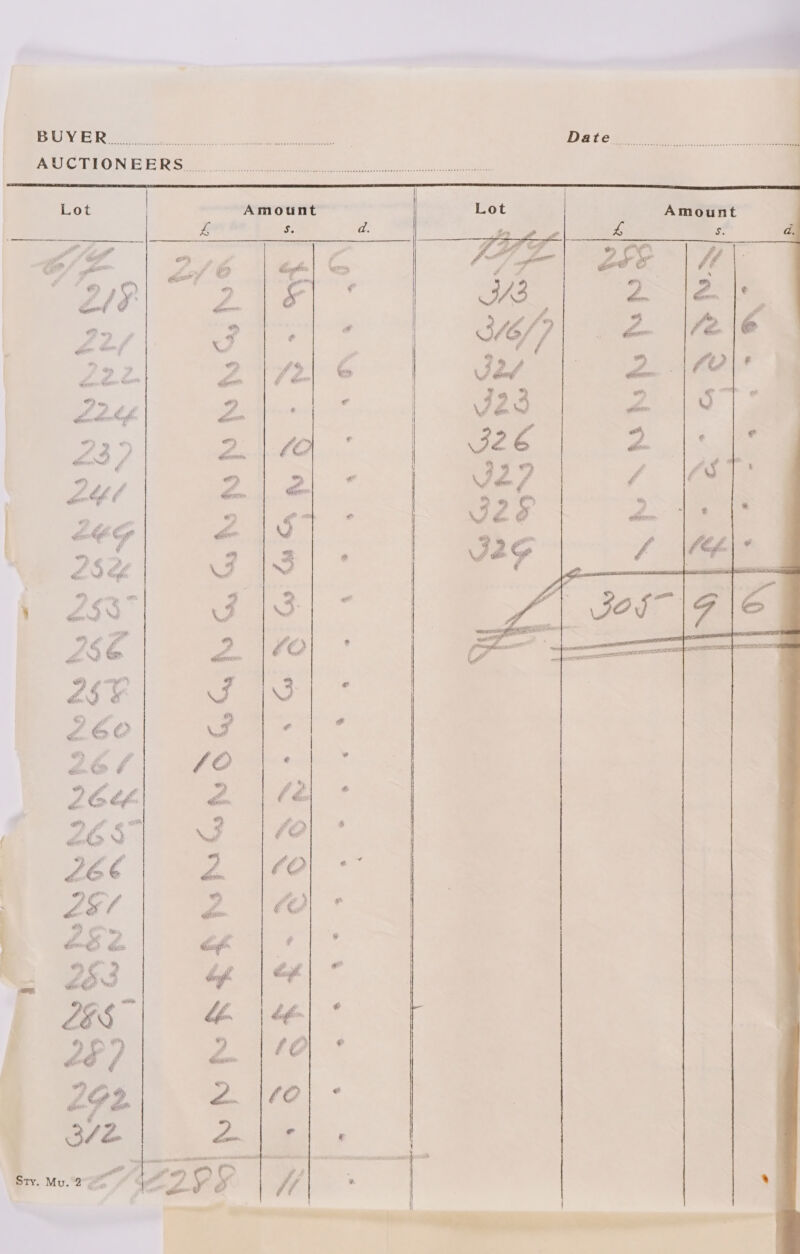 BUYER Date
AUCTIONEERS
Lot Amount Lot Amount
£ s. d. £ s. d.
B/F 216 4 6
218 2 8 "
221 3 " "
222 2 12 6
224 2 " "
237 2 10 "
241 2 2 "
249 2 5 "
254 3 3 "
255 3 3 "
256 2 10 "
258 3 3 "
260 3 " "
261 10 " "
264 2 12 "
265 3 10 "
266 2 10 "
281 2 10 "
282 4 " "
283 4 4 "
285 4 4 "
287 2 10 "
292 2 10 "
312 2 " "
Sty. Mu. 2 C/F £288 11 "
B/F 288 11 "
313 2 2 "
316/7 2 12 6
321 2 10 "
323 2 5 "
326 2 " "
327 1 15 "
328 2 " "
329 1 14 "
£ 305 9 6